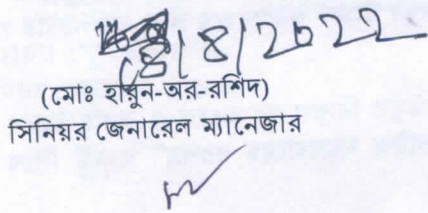 8/2022
(মোঃ হারুন-অর-রশিদ)
সিনিয়র জেনারেল ম্যানেজার